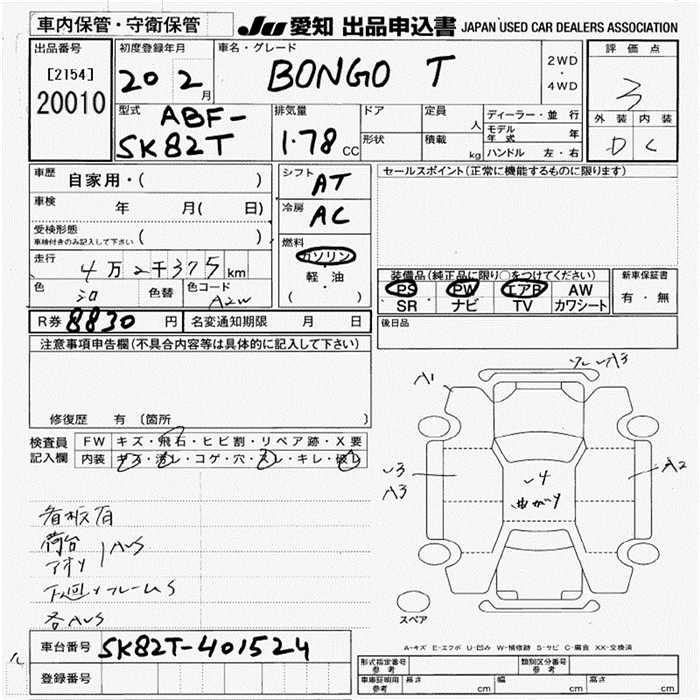 車内保管・守衛保管
JU 愛知 出品申込書 JAPAN USED CAR DEALERS ASSOCIATION
出品番号
[2154]
20010
初度登録年月
20 2月
車名・グレード
BONGO T
2WD
・
4WD
評価点
3
外装 内装
D C
型式
ABF-
SK82T
排気量
1.78 CC
ドア
形状
定員 人
積載 kg
ディーラー・並行
モデル年式 年
ハンドル 左・右
車歴 自家用・( )
車検 年 月( 日)
受検形態
車検付きのみ記入して下さい ( )
走行 4万2千375km
色 シロ 色替 色コード A2W
シフト AT
冷房 AC
燃料
ガソリン
・
軽・油
( )
セールスポイント(正常に機能するものに限ります)
装備品(純正品に限り○をつけてください)
PS PW エアB AW
SR ナビ TV カワシート
新車保証書
有・無
R券 8830円 名変通知期限 月 日
後日品
注意事項申告欄(不具合内容等は具体的に記入して下さい)
修復歴 有〔箇所
検査員
記入欄
FW キズ・飛石・ヒビ割・リペア跡・X要
内装 キズ・汚レ・コゲ・穴・スレ・キレ・破レ
看板有
荷台
アオリ AUS
下廻りフレームS
各AUS
A1
A3
U3
A3
U4
曲がり
A2
スペア
A-キズ E-エクボ U-凹み W-補修跡 S-サビ C-腐食 XX-交換済
車台番号 SK82T-401524
登録番号
形式指定番号
参考
類別区分番号
参考
車庫証明用
参考
長さ cm 幅 cm 高さ cm